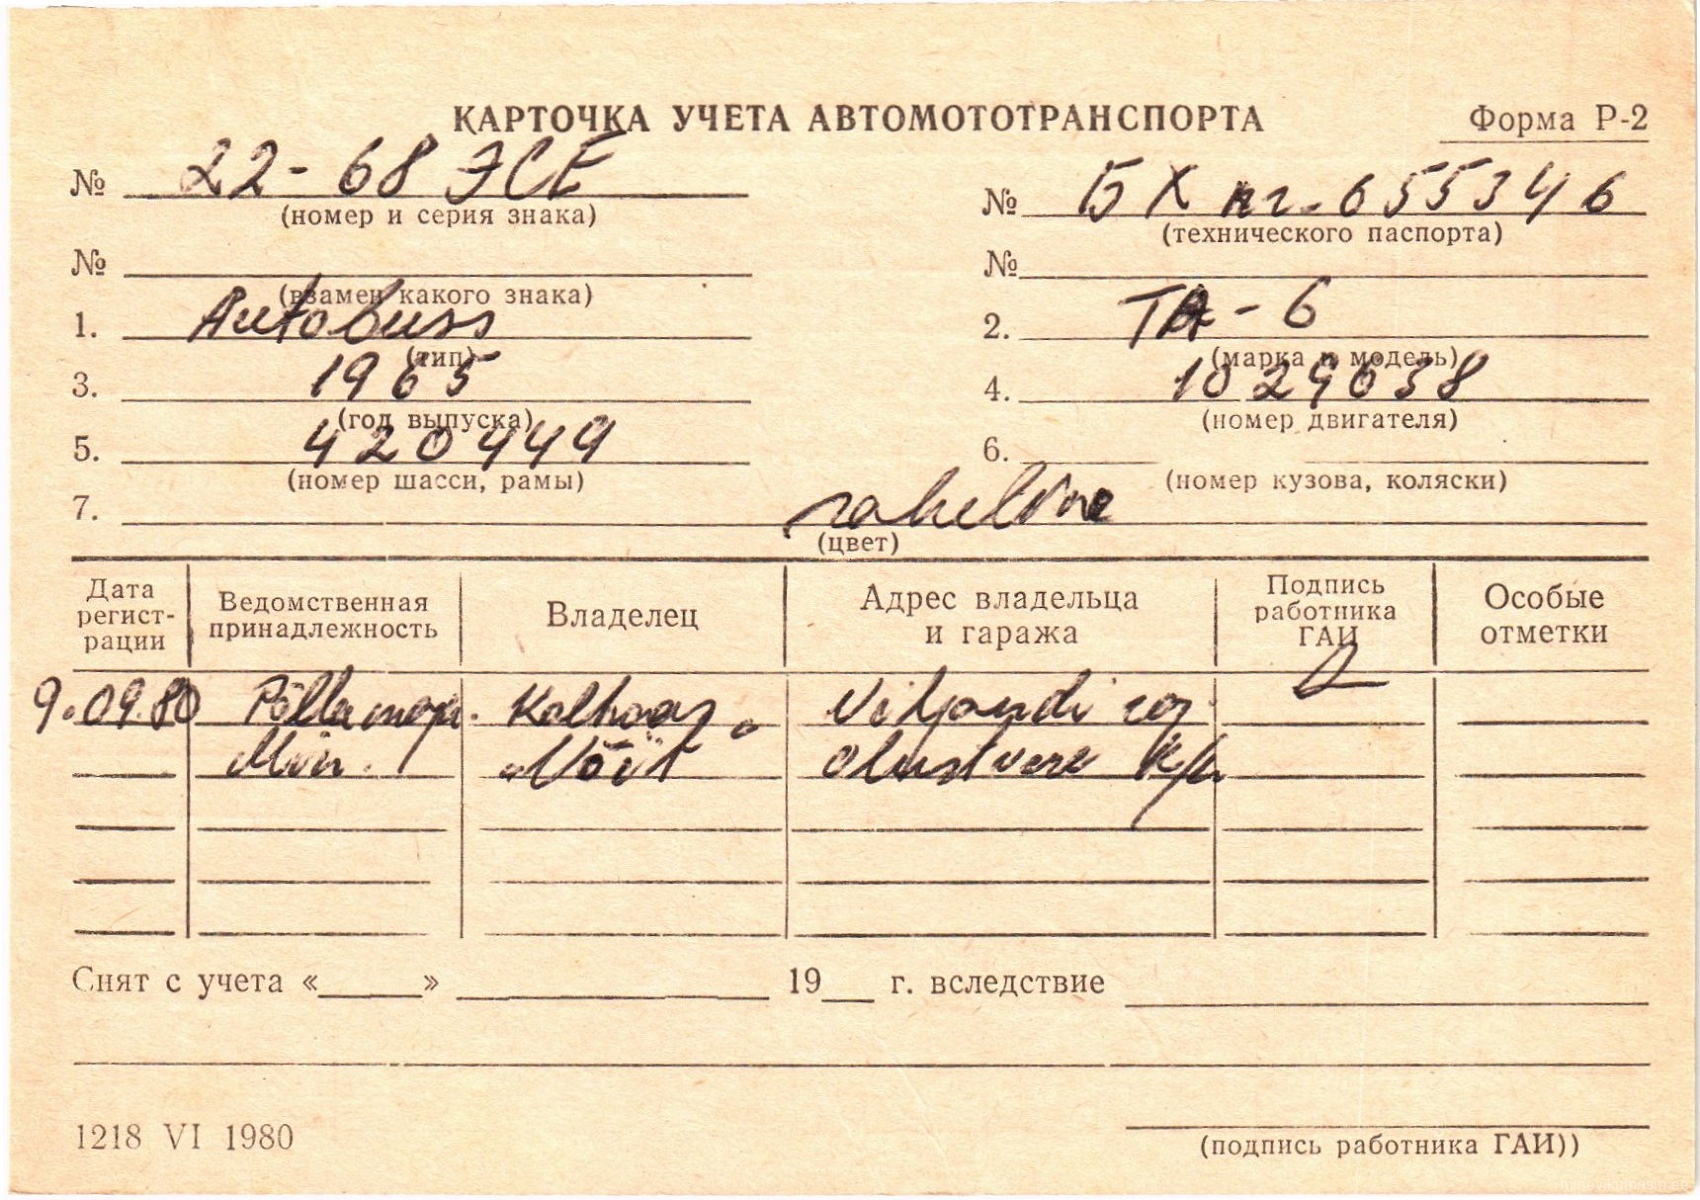 КАРТОЧКА УЧЕТА АВТОМОТОТРАНСПОРТА Форма Р-2
№ 22-68 ЭСЕ № БХ nr. 655346
(номер и серия знака) (технического паспорта)
№ №
(взамен какого знака)
1. Autobuss 2. ТА-6
(тип) (марка и модель)
3. 1965 4. 1029638
(год выпуска) (номер двигателя)
5. 420449 6.
(номер шасси, рамы) (номер кузова, коляски)
7. roheline
(цвет)
Дата регист- рации Ведомственная принадлежность Владелец Адрес владельца и гаража Подпись работника ГАИ Особые отметки
9.09.80 Põllumaj. Kolhoos Viljandi raj.
Min. „Võit" Olustvere k/n
Снят с учета «____» 19__ г. вследствие
1218 VI 1980
(подпись работника ГАИ))